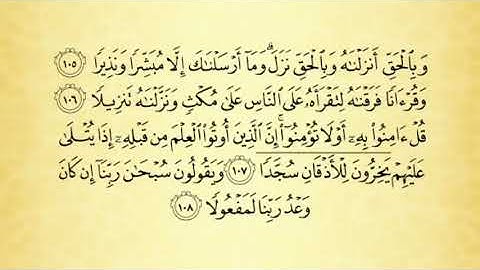 وَبِالْحَقِّ أَنزَلْنَـٰهُ وَبِالْحَقِّ نَزَلَ ۗ وَمَآ أَرْسَلْنَـٰكَ إِلَّا مُبَشِّرًا وَنَذِيرًا ١٠٥
وَقُرْءَانًا فَرَقْنَـٰهُ لِتَقْرَأَهُۥ عَلَى النَّاسِ عَلَىٰ مُكْثٍ وَنَزَّلْنَـٰهُ تَنزِيلًا ١٠٦
قُلْ ءَامِنُوا۟ بِهِۦٓ أَوْ لَا تُؤْمِنُوٓا۟ ۚ إِنَّ الَّذِينَ أُوتُوا۟ الْعِلْمَ مِن قَبْلِهِۦٓ إِذَا يُتْلَىٰ
عَلَيْهِمْ يَخِرُّونَ لِلْأَذْقَانِ سُجَّدًا ١٠٧ وَيَقُولُونَ سُبْحَـٰنَ رَبِّنَآ إِن كَانَ
وَعْدُ رَبِّنَا لَمَفْعُولًا ١٠٨